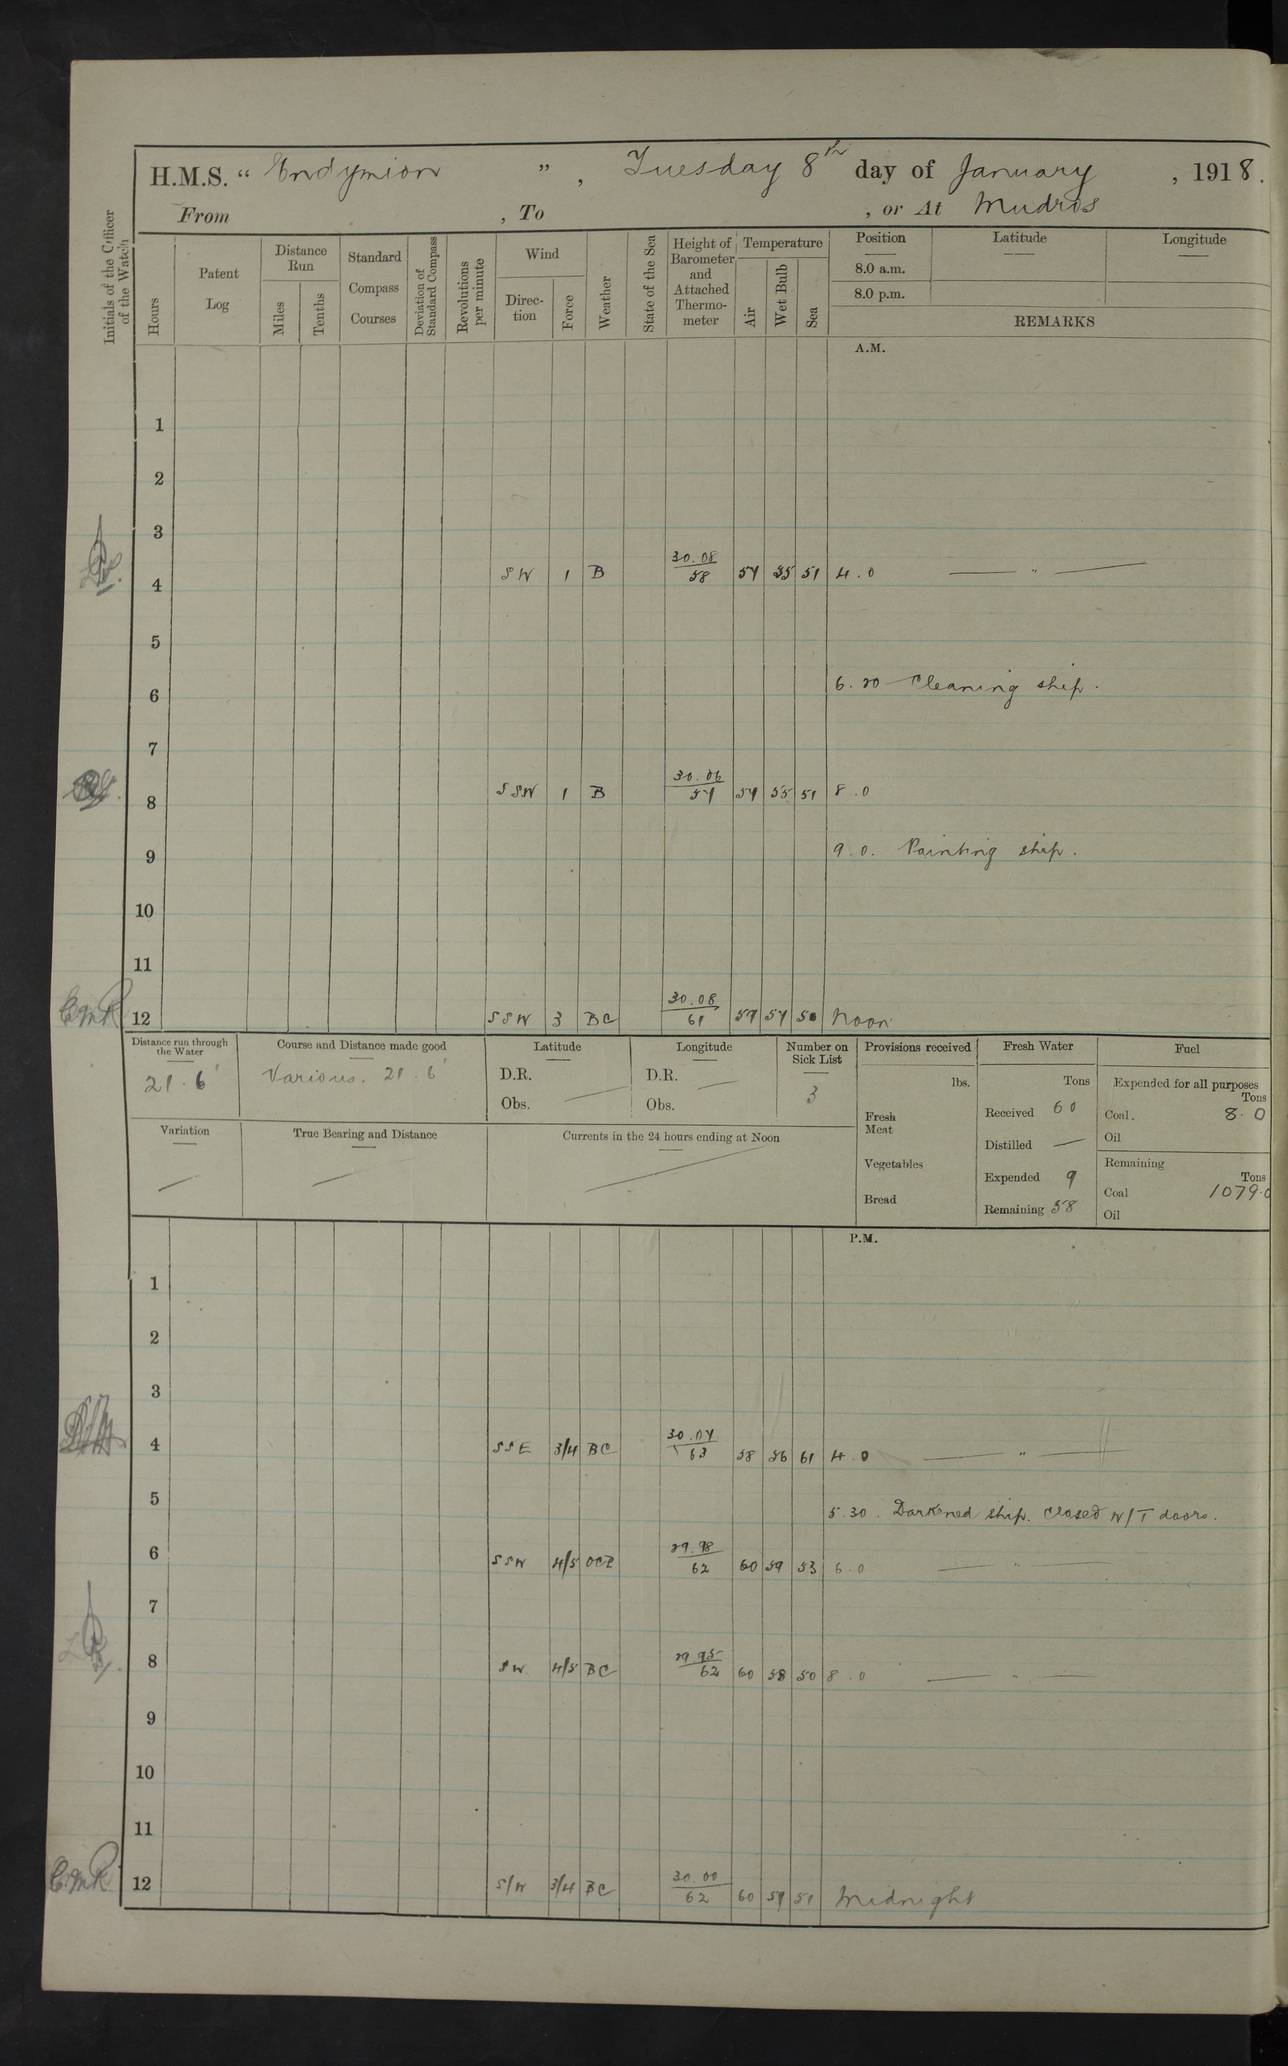 H.M.S. “ Endymion ” , Tuesday 8th day of January , 1918.
From , To , or At Mudros
Initials of the Officer of the Watch
Hours
Patent Log
Distance Run
Miles
Tenths
Standard Compass Courses
Deviation of Standard Compass
Revolutions per minute
Wind
Direction
Force
Weather
State of the Sea
Height of Barometer and Attached Thermometer
Temperature
Air
Wet Bulb
Sea
Position Latitude Longitude
8.0 a.m.
8.0 p.m.
REMARKS
A.M.
1
2
3
4 SW 1 B 30.08 58 51 4.0 — " —
5
6 6.20 Cleaning ship.
7
8 SSW 1 B 30.06 55 51 8.0
9 9.0. Painting ship.
10
11
C.M.R. 12 SSW 3 BC 30.08 61 Noon
Distance run through the Water
21.6'
Course and Distance made good
Various. 21.6'
Latitude
D.R. —
Obs.
Longitude
D.R. —
Obs.
Number on Sick List
3
Provisions received
lbs.
Fresh Meat
Vegetables
Bread
Fresh Water
Tons
Received 60
Distilled —
Expended 9
Remaining 58
Fuel
Expended for all purposes
Tons
Coal. 8.0
Oil
Remaining
Tons
Coal 1079.0
Oil
Variation
—
True Bearing and Distance
—
Currents in the 24 hours ending at Noon
—
P.M.
1
2
3
4 SSE 3/4 BC 63 58 56 61 4.0 — " —
5 5.30. Darkened ship. Closed W/T doors.
6 SSW 4/5 29.98 62 60 59 53 6.0 — " —
7
8 SW 4/5 BC 29.95 62 60 58 50 8.0 — " —
9
10
11
C.M.R. 12 S/W 3/4 BC 30.00 62 60 51 Midnight